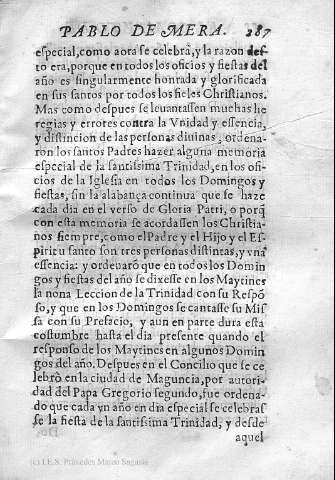 PABLO DE MERA. 287
especial, como aora se celebra, y la razon des-
to era, porque en todos los oficios y fiestas del
año es singularmente honrada y glorificada
en sus santos por todos los fieles Christianos.
Mas como despues se leuantassen muchas he
regias y errores contra la Vnidad y essencia,
y distincion de las personas diuinas, ordena-
ron los santos Padres hazer alguna memoria
especial de la santissima Trinidad, en los ofi-
cios de la Iglesia en todos los Domingos y
fiestas, sin la alabança continua que se haze
cada dia en el verso de Gloria Patri, o porq̃
con esta memoria se acordassen los Christia-
nos siempre, como el Padre y el Hijo y el Es-
piritu santo son tres personas distintas, y vna
essencia: y ordenarõ que en todos los Domin
gos y fiestas del año se dixesse en los Maytines
la nona Leccion de la Trinidad con su Respõ
so, y que en los Domingos se cantasse su Mis
sa con su Prefacio, y aun en parte dura esta
costumbre hasta el dia presente quando el
responso de los Maytines en algunos Domin
gos del año. Despues en el Concilio que se ce
lebrò en la ciudad de Maguncia, por autori-
dad del Papa Gregorio segundo, fue ordena-
do que cada vn año en dia especial se celebras
se la fiesta de la santissima Trinidad, y desde
aquel
(c) I.E.S. Práxedes Mateo Sagasta